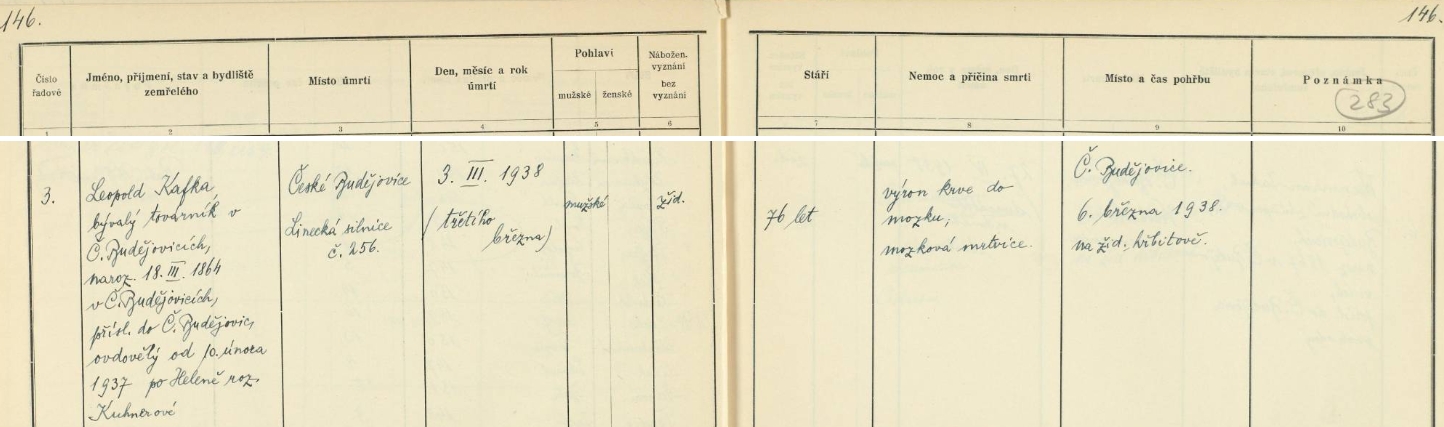 146.
146.
Číslo
řadové
Jméno, příjmení, stav a bydliště
zemřelého
Místo úmrtí
Den, měsíc a rok
úmrtí
Pohlaví
mužské
ženské
Nábožen.
vyznání
bez
vyznání
Stáří
Nemoc a příčina smrti
Místo a čas pohřbu
Poznámka
283
1
2
3
4
5
6
7
8
9
10
3.
Leopold Kafka,
bývalý továrník v
Č. Budějovicích,
naroz. 18. III. 1864
v Č. Budějovicích,
přísl. do Č. Budějovic,
ovdovělý od 10. února
1937 po Heleně roz.
Kuhnerové
České Budějovice
Linecká silnice
č. 256.
3. III. 1938
(třetího
března)
mužské
žid.
76 let
výron krve do
mozku;
mozková mrtvice.
Č. Budějovice.
6. března 1938.
na žid. hřbitově.